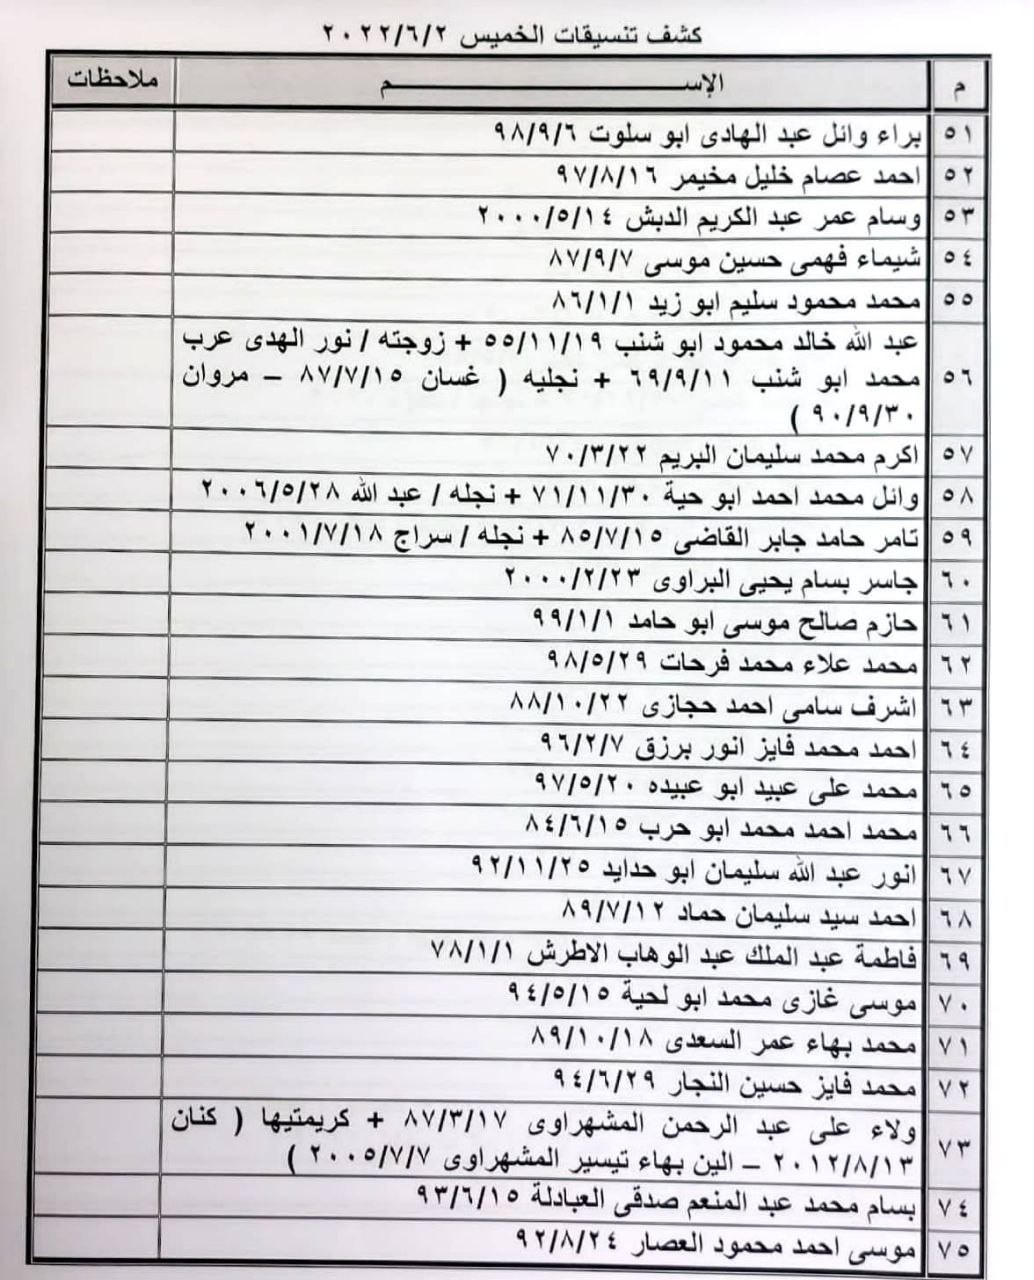 كشف تنسيقات الخميس ٢٠٢٢/٦/٢
م الإســـــــــــــــــــم ملاحظات
٥١ براء وائل عبد الهادى ابو سلوت ٩٨/٩/٦
٥٢ احمد عصام خليل مخيمر ٩٧/٨/١٦
٥٣ وسام عمر عبد الكريم الدبش ٢٠٠٠/٥/١٤
٥٤ شيماء فهمى حسين موسى ٨٧/٩/٧
٥٥ محمد محمود سليم ابو زيد ٨٦/١/١
عبد الله خالد محمود ابو شنب ٥٥/١١/١٩ + زوجته / نور الهدى عرب
٥٦ محمد ابو شنب ٦٩/٩/١١ + نجليه ( غسان ٨٧/٧/١٥ – مروان
٩٠/٩/٣٠ )
٥٧ اكرم محمد سليمان البريم ٧٠/٣/٢٢
٥٨ وائل محمد احمد ابو حية ٧١/١١/٣٠ + نجله / عبد الله ٢٠٠٦/٥/٢٨
٥٩ تامر حامد جابر القاضى ٨٥/٧/١٥ + نجله / سراج ٢٠٠١/٧/١٨
٦٠ جاسر بسام يحيى البراوى ٢٠٠٠/٢/٢٣
٦١ حازم صالح موسى ابو حامد ٩٩/١/١
٦٢ محمد علاء محمد فرحات ٩٨/٥/٢٩
٦٣ اشرف سامى احمد حجازى ٨٨/١٠/٢٢
٦٤ احمد محمد فايز انور برزق ٩٦/٢/٧
٦٥ محمد على عبيد ابو عبيده ٩٧/٥/٢٠
٦٦ محمد احمد محمد ابو حرب ٨٤/٦/١٥
٦٧ انور عبد الله سليمان ابو حدايد ٩٢/١١/٢٥
٦٨ احمد سيد سليمان حماد ٨٩/٧/١٢
٦٩ فاطمة عبد الملك عبد الوهاب الاطرش ٧٨/١/١
٧٠ موسى غازى محمد ابو لحية ٩٤/٥/١٥
٧١ محمد بهاء عمر السعدى ٨٩/١٠/١٨
٧٢ محمد فايز حسين النجار ٩٤/٦/٢٩
٧٣ ولاء على عبد الرحمن المشهراوى ٨٧/٣/١٧ + كريمتيها ( كنان
٢٠١٢/٨/١٣ – الين بهاء تيسير المشهراوى ٢٠٠٥/٧/٧ )
٧٤ بسام محمد عبد المنعم صدقى العبادلة ٩٣/٦/١٥
٧٥ موسى احمد محمود العصار ٩٢/٨/٢٤